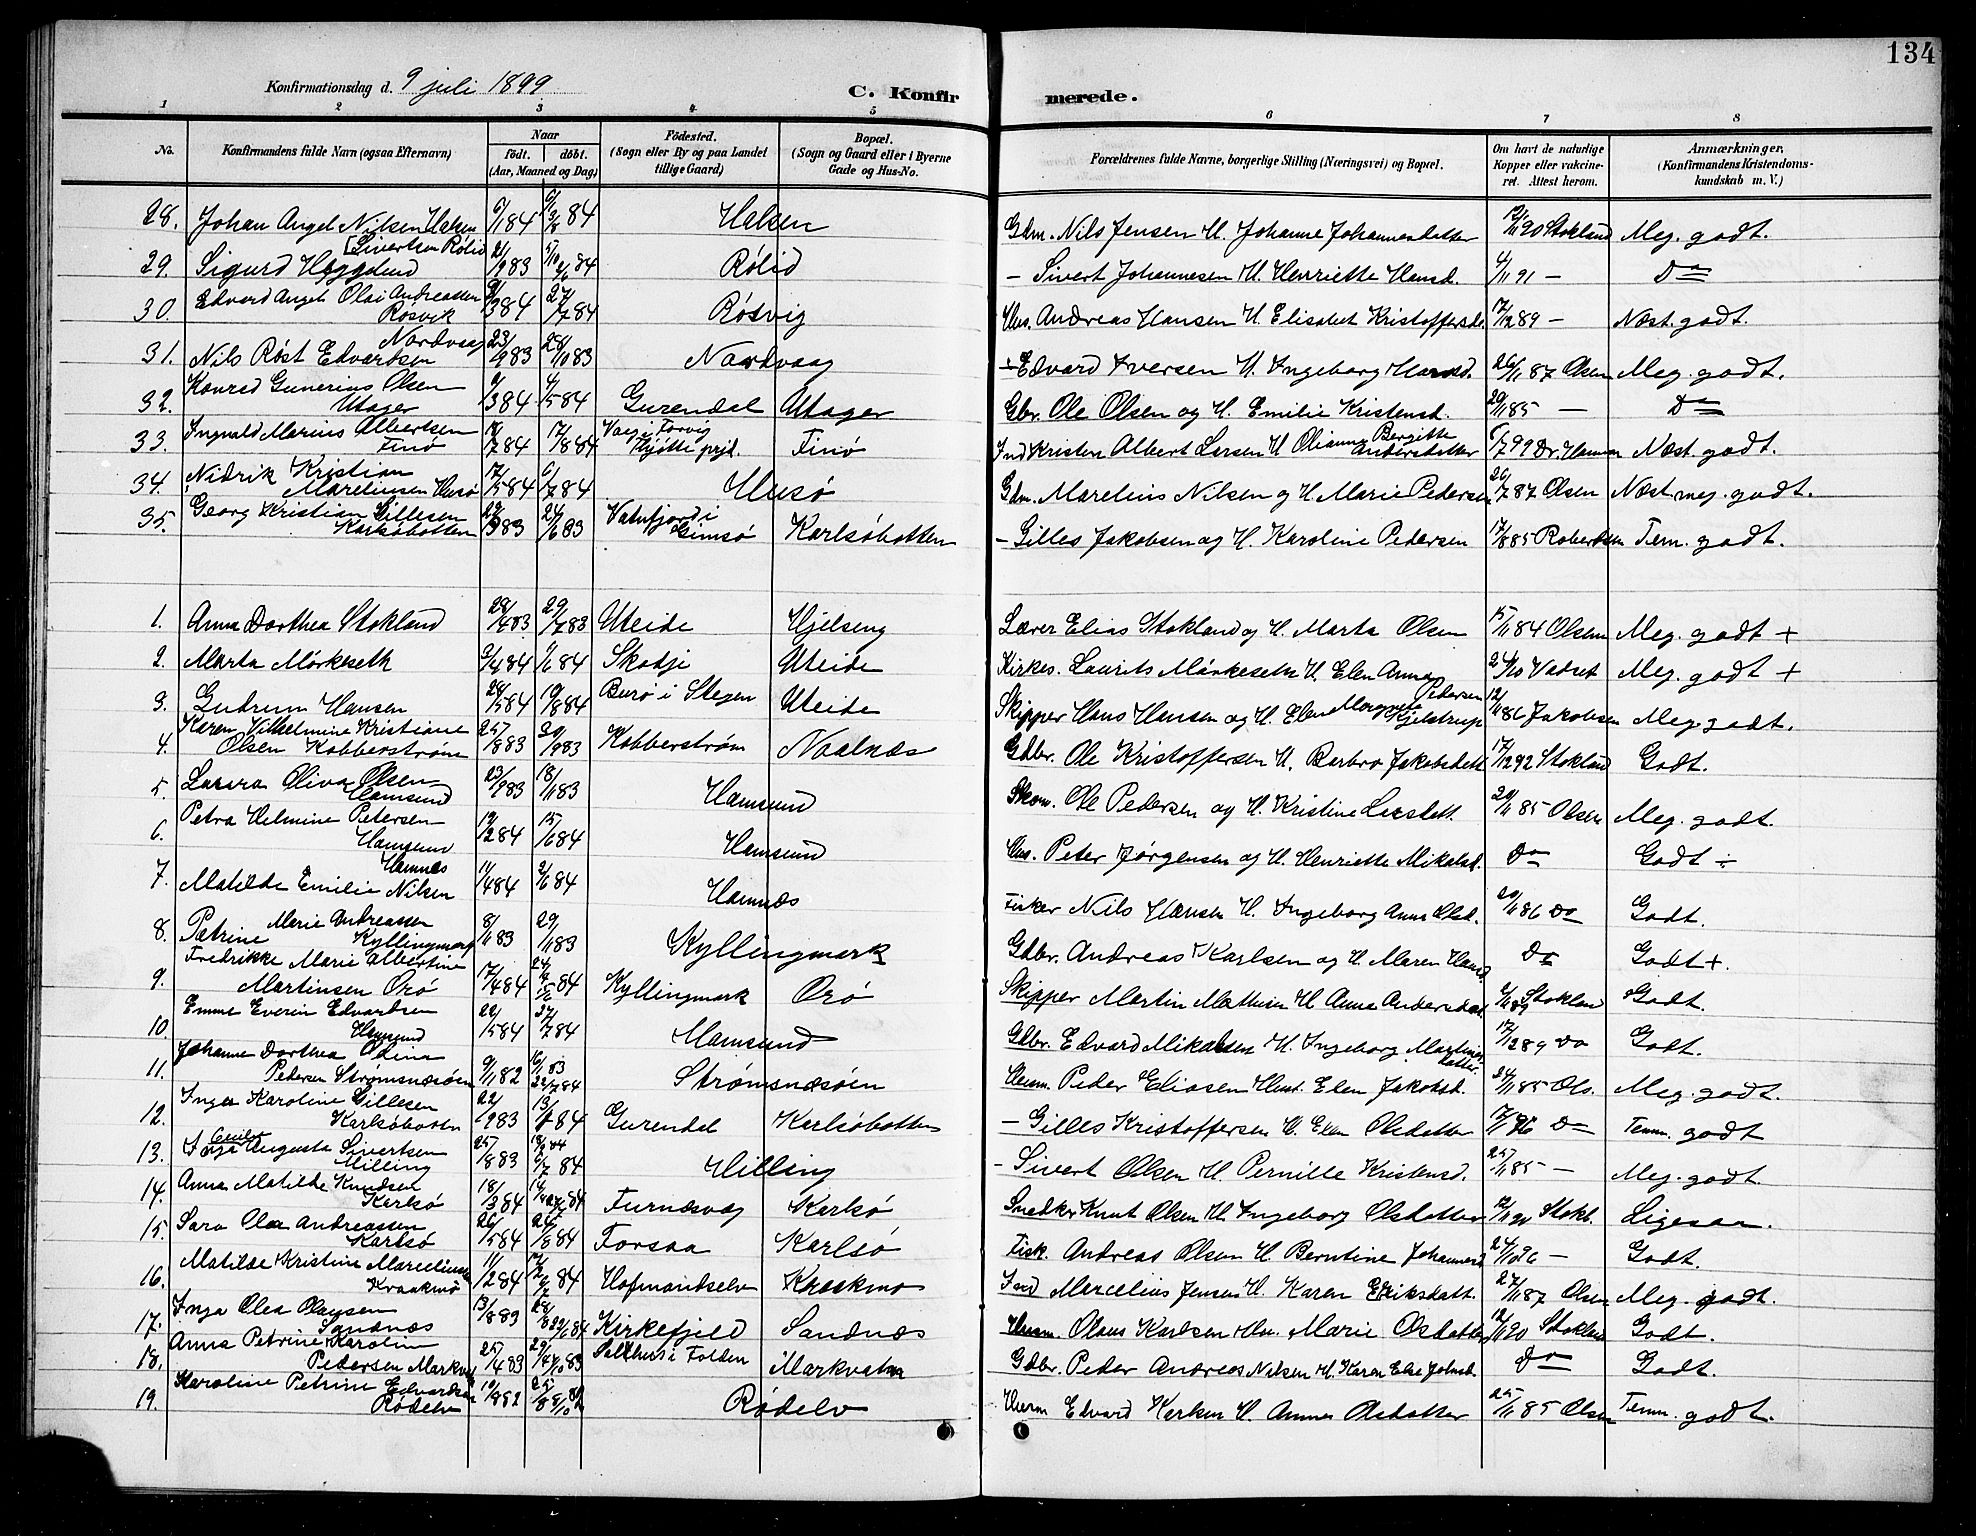 134
Konfirmationsdag d. 9 juli 1899
C. Konfirmerede.
1 2 3 4 5 6 7 8
No. Konfirmandens fulde Navn (ogsaa Efternavn) Naar født. døbt. (Aar, Maaned og Dag) Fødested. (Sogn eller By og paa Landet tillige Gaard) Bopæl. (Sogn og Gaard eller i Byerne Gade og Hus-No. Forældrenes fulde Navne, borgerlige Stilling (Næringsvei) og Bopæl. Om havt de naturlige Kopper eller vakcineret. Attest herom. Anmærkninger, (Konfirmandens Kristendomskundskab m. V.)
28. Johan Angel Nilsen Halsen 6/1 84 84 Gdm. Nils Jensen H. Johanne Johannesdatter 90 Stokland Meg. godt.
29. Sigurd Sivertsen Rølid 21/9 83 84 Rølid – Sivert Johannesen H. Henriette Hansd. 4/11 91 – Do
30. Edvard Angel Olai Andreassen Rosvik 84 27/7 84 Røsvig Hus. Andreas Hansen H. Elisabet Kristoffersd. 17/12 89 – Næst. godt.
31. Nils Røst Edvardsen Nordvaag 23/9 83 28/10 83 Nordvaag – Edvard Iversen H. Ingeborg Hansd. 26/11 87 Olsen Meg. godt.
32. Konrad Gunerius Olsen Utager 9/3 84 4/5 84 Gurendal Utager Gbr. Ole Olsen og H. Emilie Kristensd. 29/11 85 – Do
33. Ingvald Marius Albertsen Finø 7 84 17/8 84 Forvig Tjøtte prjd. Finø Ind Kristen Albert Larsen H. Olianna Bergitte Andersdatter 6/7 99 Dr. Hansen Næst. godt.
34. Nidrik Kristian Marelinsen Husø 17/5 84 6/7 84 Husø Gdm. Marelius Nilsen og H. Marie Pedersen 26/7 87 Olsen Næst meg. godt.
35. Georg Kristian Gillesen Karlsøbotten 83 24/6 83 Vatnfjord i Gimsø Karlsøbotten – Gilles Jakobsen og H. Karoline Pedersen 17/8 85 Robertsen Tem. godt.
1. Anna Dorthea Stokland 28/4 83 29/7 83 Uteide Hjelseng Lærer Elias Stokland og H. Marta Olsen 15/11 84 Olsen Meg. godt +
2. Marta Mørkeseth 9/4 84 84 Skodje Uteide Kirkes. Laurits Mørkeseth H. Elen Anna Pedersen 24/10 Vadset Meg. godt +
3. Gudrun Hansen 28/5 84 10/8 84 Burø i Stegen Uteide Skipper Hans Hansen og H. Elen Margrete Kjelstrup 12/11 86 Jakobsen Meg. godt.
4. Karen Vilhelmine Kristiane Olsen Kobberstrøm 25/8 83 20/9 83 Kobberstrøm Naalnæs Gdbr. Ole Kristoffersen H. Barbro Jakobsdatt 17/12 92 Stokland Godt.
5. Laura Oliva Olsen Hamsund 23/9 83 18/11 83 Hamsund Skom. Ole Pedersen og H. Kristine Larsdatt. 29/11 85 Olsen Meg. godt.
6. Petra Helmine Petersen Hamsund 19/2 84 15/6 84 Hamsund Hus. Peter Jørgensen og H. Henriette Mikalsd. Do Godt ÷
7. Matilde Emilie Nilsen Hamnæs 11/4 84 2/6 84 Hamnæs Fisker Nils Hansen H. Ingeborg Anna Olsd. 20/11 86 Do Godt.
8. Petrine Marie Andreassen Kyllingmark 8/11 83 29/11 83 Kyllingmark Gdbr. Andreas Karlsen og H. Maren Hansd. Do Godt +.
9. Fredrikke Marie Albertine Martinsen Orø 17/4 84 84 Kyllingmark Orø Skipper Martin Mathisen H. Anna Andersdat. 89 Stokland Godt.
10. Emma Everin Edvardsen Hamsund 22/5 84 7 84 Hamsund Gdbr. Edvard Mikalsen H. Ingeborg Martinsdatter 17/12 89 Do Godt.
11. Johanna Dorthea Odina Pedersen Strømsnæsøen 9/11 82 16/1 83 22/7 84 Strømsnæsøen Husm. Peder Eliasen Hust. Elen Jakobsd. 24/11 85 Ols. Meg. godt.
12. Inga Karoline Gillesen Karlsøbotten 22/9 83 13/ 84 Gurendal Karlsøbotten – Gilles Kristoffersen H. Elen Olsdatter Do Temm. godt
13. Augusta Sivertsen Hilling 25/8 83 84 Hilling – Sivert Olsen H. Pernille Kristensd. 25/11 85 – Meg. godt.
14. Anna Matilde Knudsen Karlsø 18/3 84 84 Furnæsvag Karlsø Snedker Knut Olsen H. Ingeborg Olsdatter 12/11 90 Stokl. Ligesaa.
15. Sara Olea Andreassen Karlsø 26/5 84 24/8 84 Forsaa Karlsø Fisk. Andreas Olsen H. Berntine Johannesd. – Godt.
16. Matilde Kristine Marcelinsen Kraakmo 11/2 84 84 Hofmandselv Kraakmo Ind Marcelius Jensen H. Karen Eriksdatt. 27/11 87 Olsen Meg. godt.
17. Inga Olea Olausen Sandnæs 13/8 83 84 Kirkefjeld Sandnæs Husm. Olaus Karlsen Hu. Marie Olsdatter 12/11 90 Stokland Godt.
18. Anna Petrine Karolin Pedersen Markvatn 25/4 83 83 Salthus i Folden Markvatn Gdbr. Peder Andreas Nilsen H. Karen Else Johnsd. Do Godt.
19. Karoline Petrine Edvardsen Rødelv 10/8 82 Rødelv Husm Edvard Karlsen H. Anna Olsdatter 25/11 85 Olsen Temm. godt.